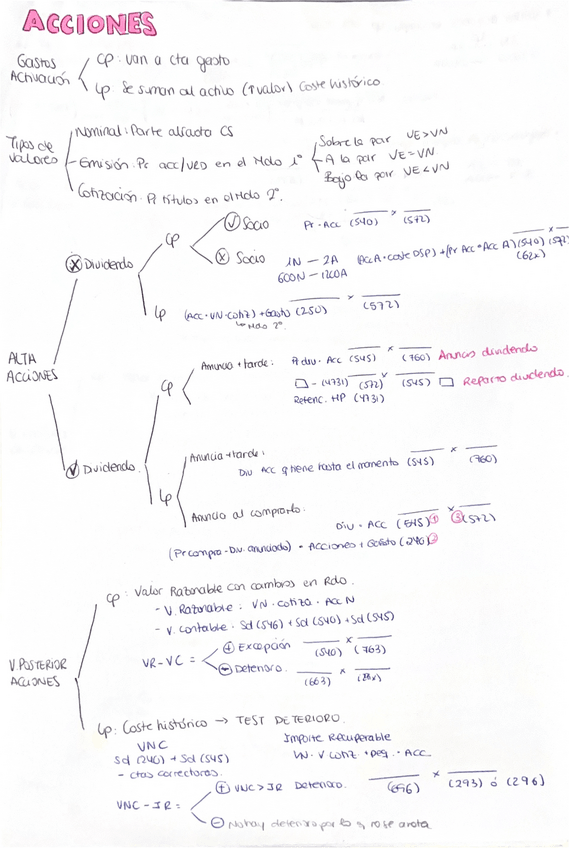 ACCIONES
Gastos Activación
cp: van a cta gasto
lp: Se suman al activo (↑valor) Coste histórico
Tipos de valores
Nominal: Parte alícuota CS
Emisión: Pr acc/ved en el Mdo 1º
Sobre la par VE>VN
A la par VE=VN
Bajo la par VE<VN
Cotización: Pr títulos en el Mdo 2º
ALTA ACCIONES
Ⓧ Dividendo
cp
✓ Socio Pr · Acc (540) x (572)
Ⓧ Socio 1N - 2A (Acc A · coste DSP) + (Pr Acc · Acc A) (540) x (572)
600N - 1200A (62x)
lp (Acc · VN · cotiz) + Gasto (250) x (572)
↳ Mdo 2º
✓ Dividendo
cp
Anuncio + tarde: Pr div · Acc (545) x (760) Anuncio dividendo
□ - (4731) (572) x (545) □ Reparto dividendo.
Retenc. HP (4731)
lp
Anuncia + tarde:
Div Acc q tiene hasta el momento (545) x (760)
Anuncio al comprarlo:
Div · Acc (545)① x ③(572)
(Pr compra - Div. anunciado) · Acciones + Gasto (240)②
V. POSTERIOR ACCIONES
cp: Valor Razonable con cambios en Rdo.
- V. Razonable: VN · cotiza · Acc N
- V. contable: Sd (546) + Sd (540) + Sd (545)
VR - VC =
⊕ Excepción (540) x (763)
⊖ Deterioro. (663) x
lp: Coste histórico → TEST DETERIORO.
VNC
Sd (240) + Sd (545)
- ctas correctoras.
Importe Recuperable
VN · V cotiz · Acc.
VNC - IR =
⊕ VNC > IR Deterioro. (696) x (293) ó (296)
⊖ No hay deterioro por lo q no se anota